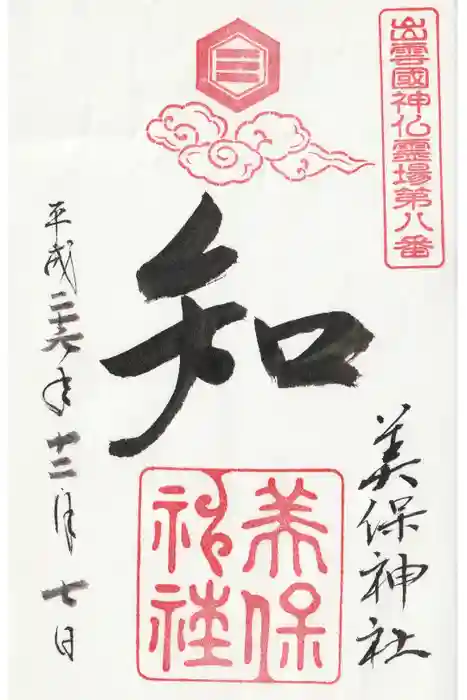 出雲國神仏霊場第八番
美保神社
知
美保
神社
平成二十六年十二月七日